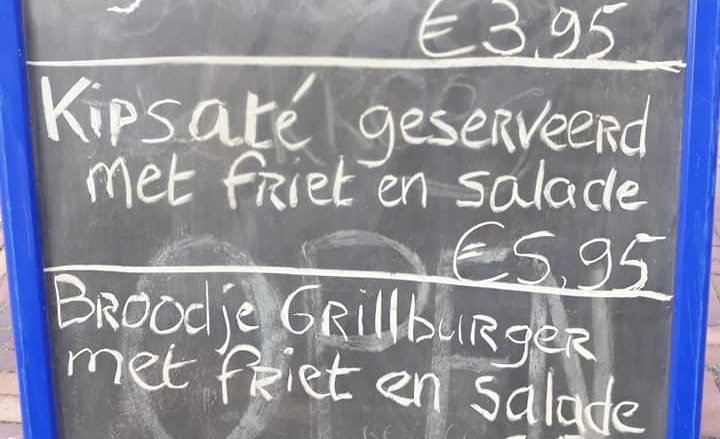 €3,95
Kipsaté geserveerd
met friet en salade
€5,95
Broodje Grillburger
met friet en salade